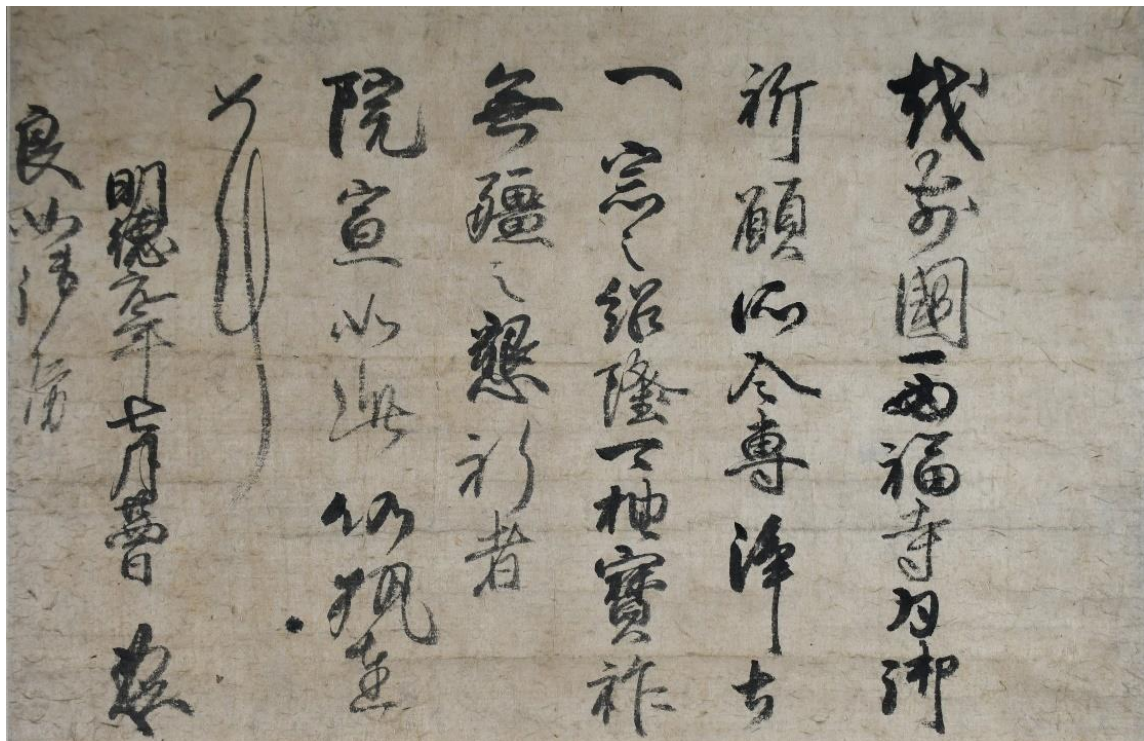 越前國西福寺為御
祈願所令専浄土
一宗之紹隆可抽寶祚
無疆之懇祈者
院宣如此仍執達
如件
明徳元年七月廿日
良如御房